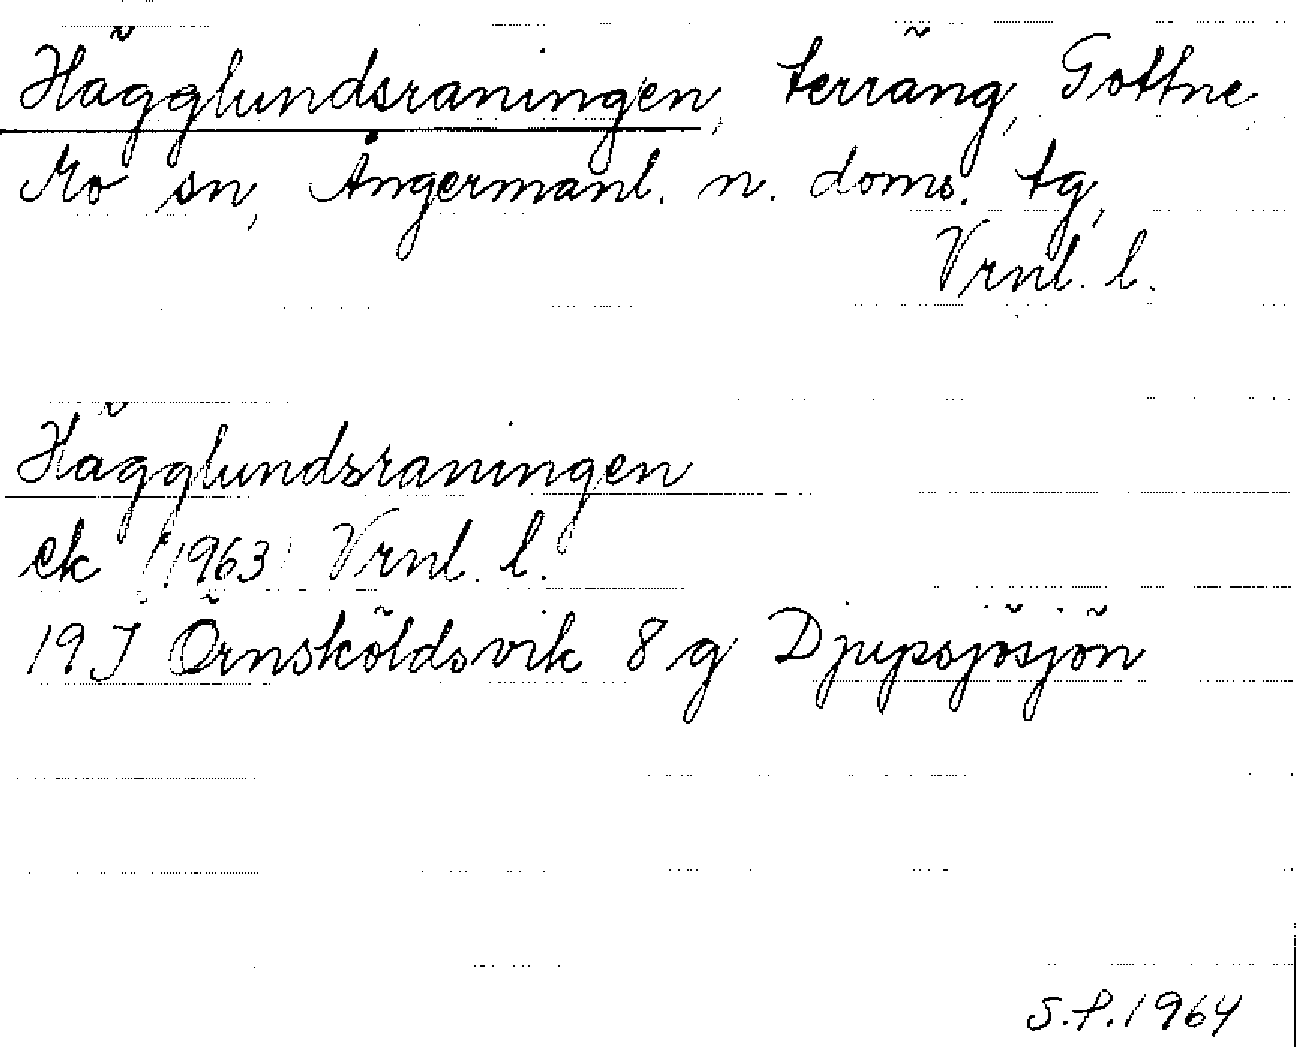 Hägglundsraningen, terräng, Gottne
Mo sn, Ångermanl. n. doms. tg,
Vrnl. l.
Hägglundsraningen
ek (1963) Vrnl. l.
19J Örnsköldsvik 8g Djupsjösjön
S.P. 1964